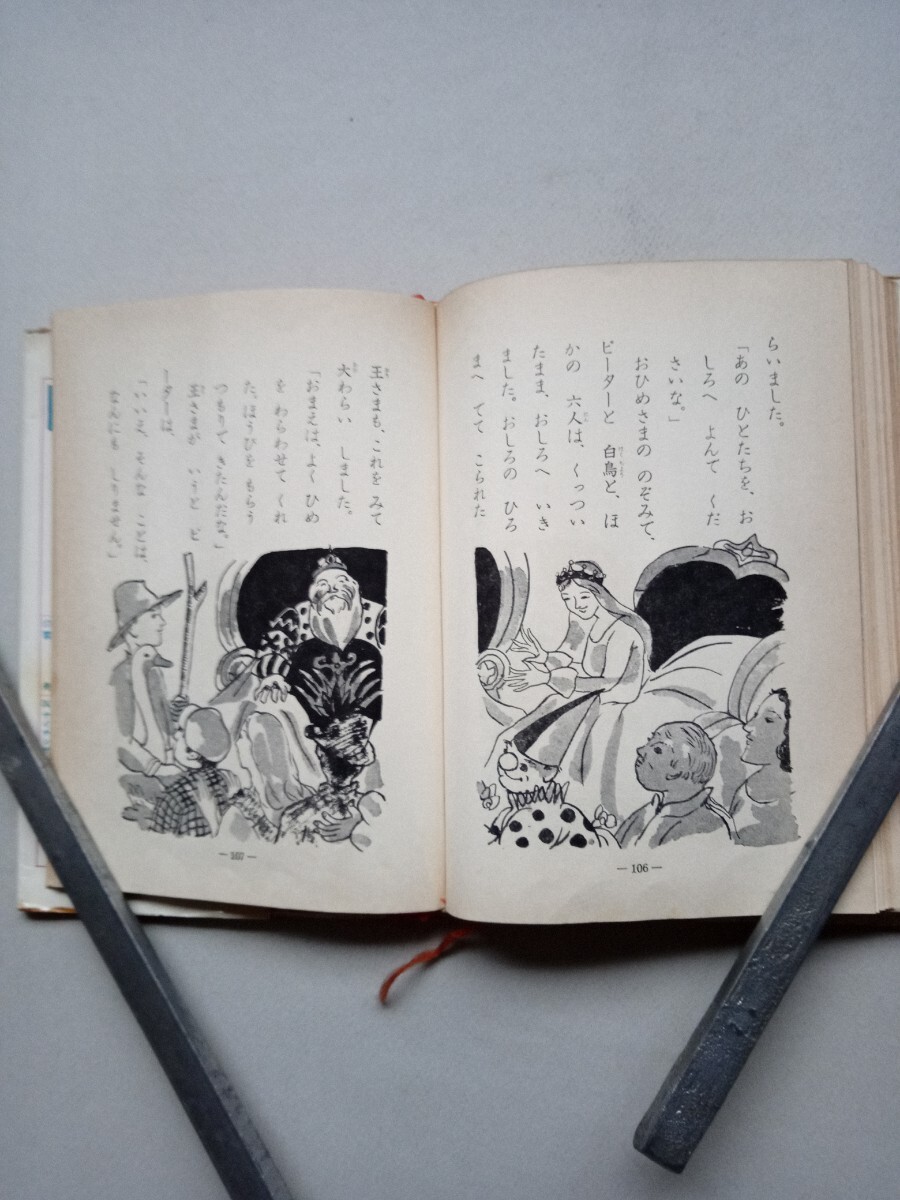 らいました。
「あの ひとたちを、お
しろへ よんで くだ
さいな。」
おひめさまの のぞみで、
ピーターと 白鳥と、ほ
かの 六人は、くっつい
たまま、おしろへ いき
ました。おしろの ひろ
まへ でて こられた
— 106 —
王さまも、これを みて
大わらい しました。
「おまえは、よく ひめ
を わらわせて くれ
た。ほうびを もらう
つもりで きたんだな。」
王さまが いうと ピ
ーターは、
「いいえ、そんな ことは、
なんにも しりません。」
— 107 —